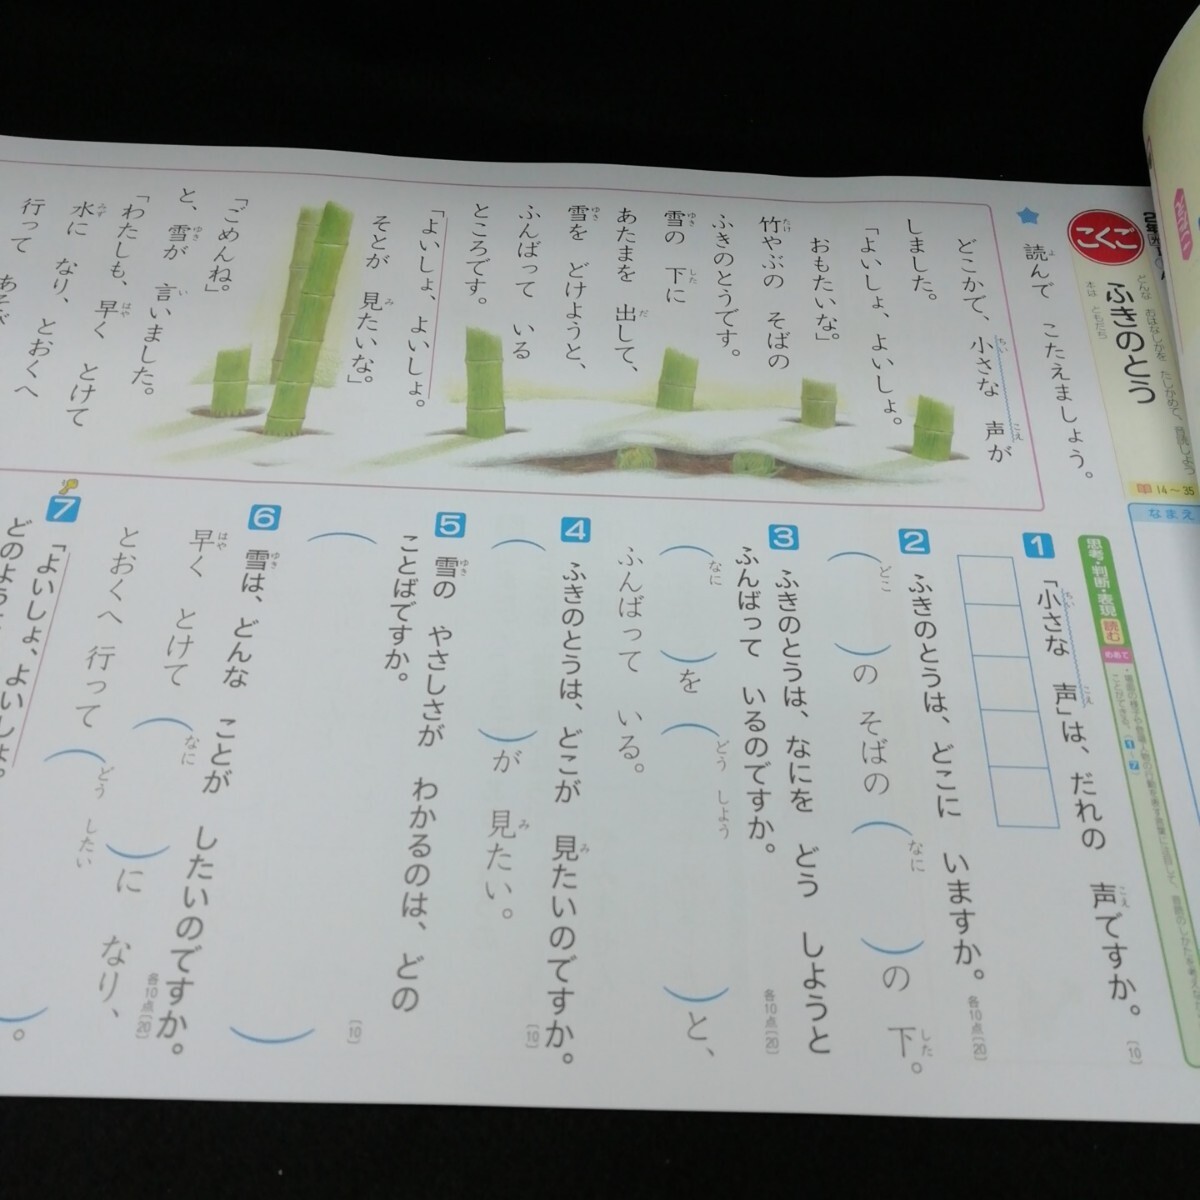 こくご
2年
どんな おはなしかを たしかめて、音読しよう
ふきのとう
本は ともだち
14〜35
なまえ
読んで こたえましょう。
どこかで、小さな 声が
しました。
「よいしょ、よいしょ。
おもたいな」
竹やぶの そばの
ふきのとうです。
雪の 下に
あたまを 出して、
雪を どけようと、
ふんばって いる
ところです。
「よいしょ、よいしょ。
そとが 見たいな」
「ごめんね」
と、雪が 言いました。
「わたしも、早く とけて
水に なり、とおくへ
行って あそび
思考・判断・表現 読む
めあて
1 「小さな 声」は、だれの 声ですか。
〔10〕
2 ふきのとうは、どこに いますか。
各10点〔20〕
(どこ )の そばの (なに )の 下。
3 ふきのとうは、なにを どう しようと
ふんばって いるのですか。
各10点〔20〕
(なに )を (どう しよう )と、
ふんばって いる。
4 ふきのとうは、どこが 見たいのですか。
〔10〕
( )が 見たい。
5 雪の やさしさが わかるのは、どの
ことばですか。
〔10〕
( )
6 雪は、どんな ことが したいのですか。
各10点〔20〕
早く とけて (なに )に なり、
とおくへ 行って (どう したい )。
7 「よいしょ、よいしょ。
どのよう